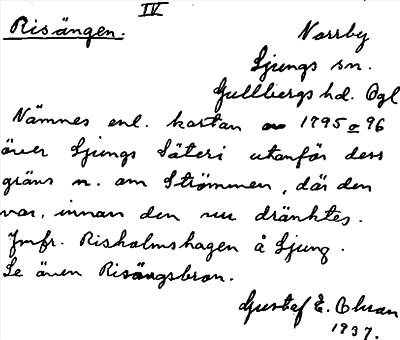 IV
Risängen.
Norrby
Ljungs sn.
Gullbergs hd. Ögl
Nämnes enl. kartan av 1795 o 96
över Ljungs Säteri utanför dess
gräns n. om Strömmen, där den
var, innan den nu dränktes.
Jmfr. Risholmshagen å Ljung.
Se även Risängsbron.
Gustaf E. Olsson
1937.